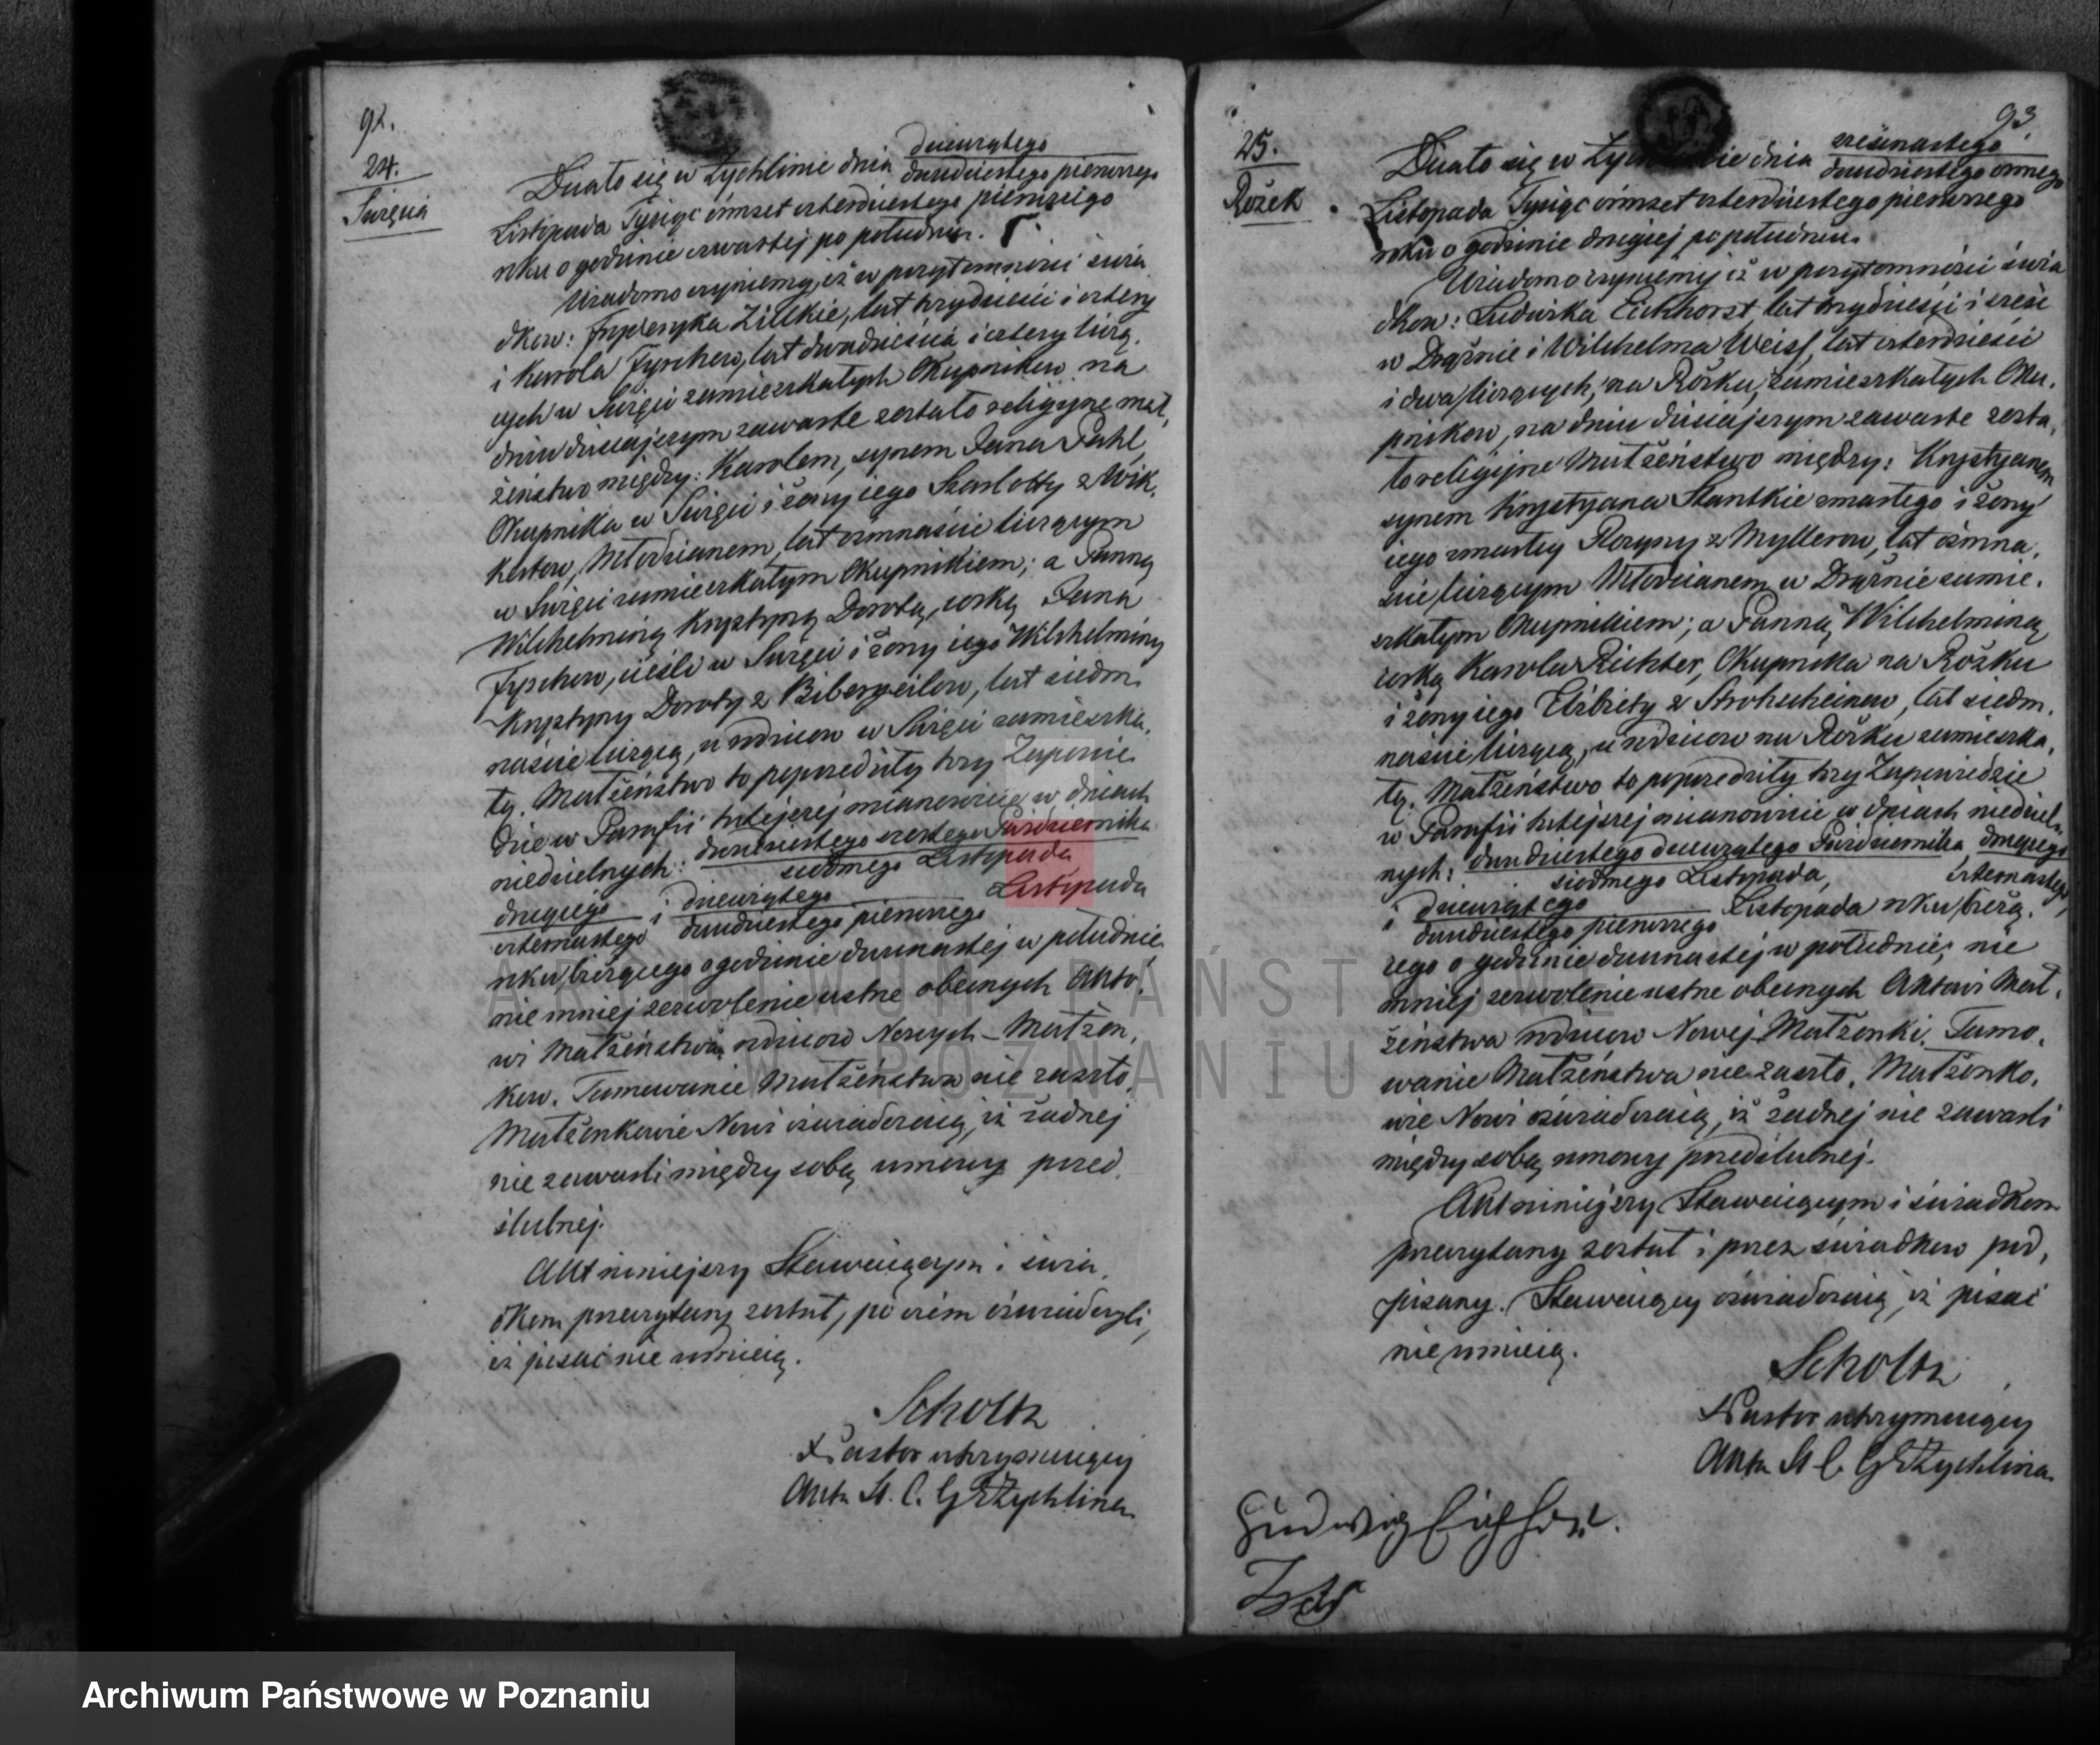 92.
24.
Święcia
dziewiątego
Działo się w Żychlinie dnia dwudziestego pierwszego
Listopada Tysiąc ośmset czterdziestego pierwszego
roku o godzinie czwartej po południu.
Wiadomo czyniemy, iż w przytomności świa
dków: Fryderyka Zielkie, lat trzydzieści i cztery
i Karola Fyschera, lat dwadzieścia i cztery liczą,
cych w Święcii zamieszkałych Okupników na
dniu dzisiajszym zawarte zostało religijne mał,
żeństwo między: Karolem, synem Jana Pahl,
Okupnika w Święcii i żony iego Szarlotty z Wik,
kertow, Młodzianem, lat ośmnaście liczącym
w Święcii zamieszkałym Okupnikiem; a Panną
Wilchelminą Krystyną Dorotą, córką Jana
Fyscher, cieśli w Święcii i żony iego Wilchelminy
Krystyny Doroty z Bibersteilow, lat siedm,
naście liczącą, u rodzicow w Święcii zamieszka,
łą. Małżeństwo to poprzedziły trzy Zapowie,
dzie w Parafii tutejszej mianowicie w dniach
niedzielnych: dwudziestego szostego Października
siodmego Listopada
drugiego i dziewiątego Listopada
czternastego dwudziestego pierwszego
roku bieżącego o godzinie dwunastej w południe,
nie mniej zezwolenie ustne obecnych Akto,
wi Małżeństwa rodzicow Nowych-Małżon,
kow. Tamowanie Małżeństwa nie zaszło,
Małżonkowie Nowi oświadczaią, iż żadnej
nie zawarli między sobą umowy przed,
ślubnej.
Akt niniejszy Stawaiącym i świa,
dkom przeczytany został, po czém oświadczyli,
iż pisać nie umieią.
Scholtz
Pastor utrzymuiący
Akta St. C. G E Żychlina
93.
25.
Rożek
szesnastego
Działo się w Żychlinie dnia dwudziestego osmego
Listopada Tysiąc ośmset czterdziestego pierwszego
roku o godzinie drugiej po południu.
Wiadomo czyniemy iż w przytomności świa
dkow: Ludwika Eichhorst lat trzydzieści i sześć
w Drążnie i Wilchelma Weiss, lat czterdzieści
i dwa liczących, na Rożku, zamieszkałych Oku,
pnikow, na dniu dzisiajszym zawarte zosta,
ło religijne Małżeństwo między: Krystyanem
synem Krystyana Stantkie zmarłego i żony
iego zmarłey Rozyny z Myllerow, lat ośmna,
ście liczącym Młodzianem w Drążnie zamie,
szkałym Okupnikiem; a Panną Wilchelminą
córką Karola Richter, Okupnika na Rożku
i żony iego Elżbiety z Strohscheinow, lat siedm,
naście liczącą, u rodzicow na Rożku zamieszka,
łą. Małżeństwo to poprzedziły trzy Zapowiedzie
w Parafii tutejszej mianowicie w dniach niedziel,
nych: dwudziestego dziewiątego Października drugiego
siodmego Listopada, czternastego,
i dziewiątego Listopada roku bieżą,
dwudziestego pierwszego
cego o godzinie dwunastej w południe; nie
mniej zezwolenie ustne obecnych Aktowi Mał,
żeństwa rodzicow Nowej-Małżonki. Tamo,
wanie Małżeństwa nie zaszło. Małżonko,
wie Nowi oświadczaią, iż żadnej nie zawarli
między sobą umowy przedślubnej.
Akt niniejszy Stawaiącym i świadkom
przeczytany został i przez świadkow pod,
pisany. Stawaiący oświadczaią, iż pisać
nie umieią.
Scholtz
Pastor utrzymuiący
Akta St C. G E Żychlina
Ludwig Eichhorst.
ARCHIWUM PAŃSTWOWE
W POZNANIU
Archiwum Państwowe w Poznaniu